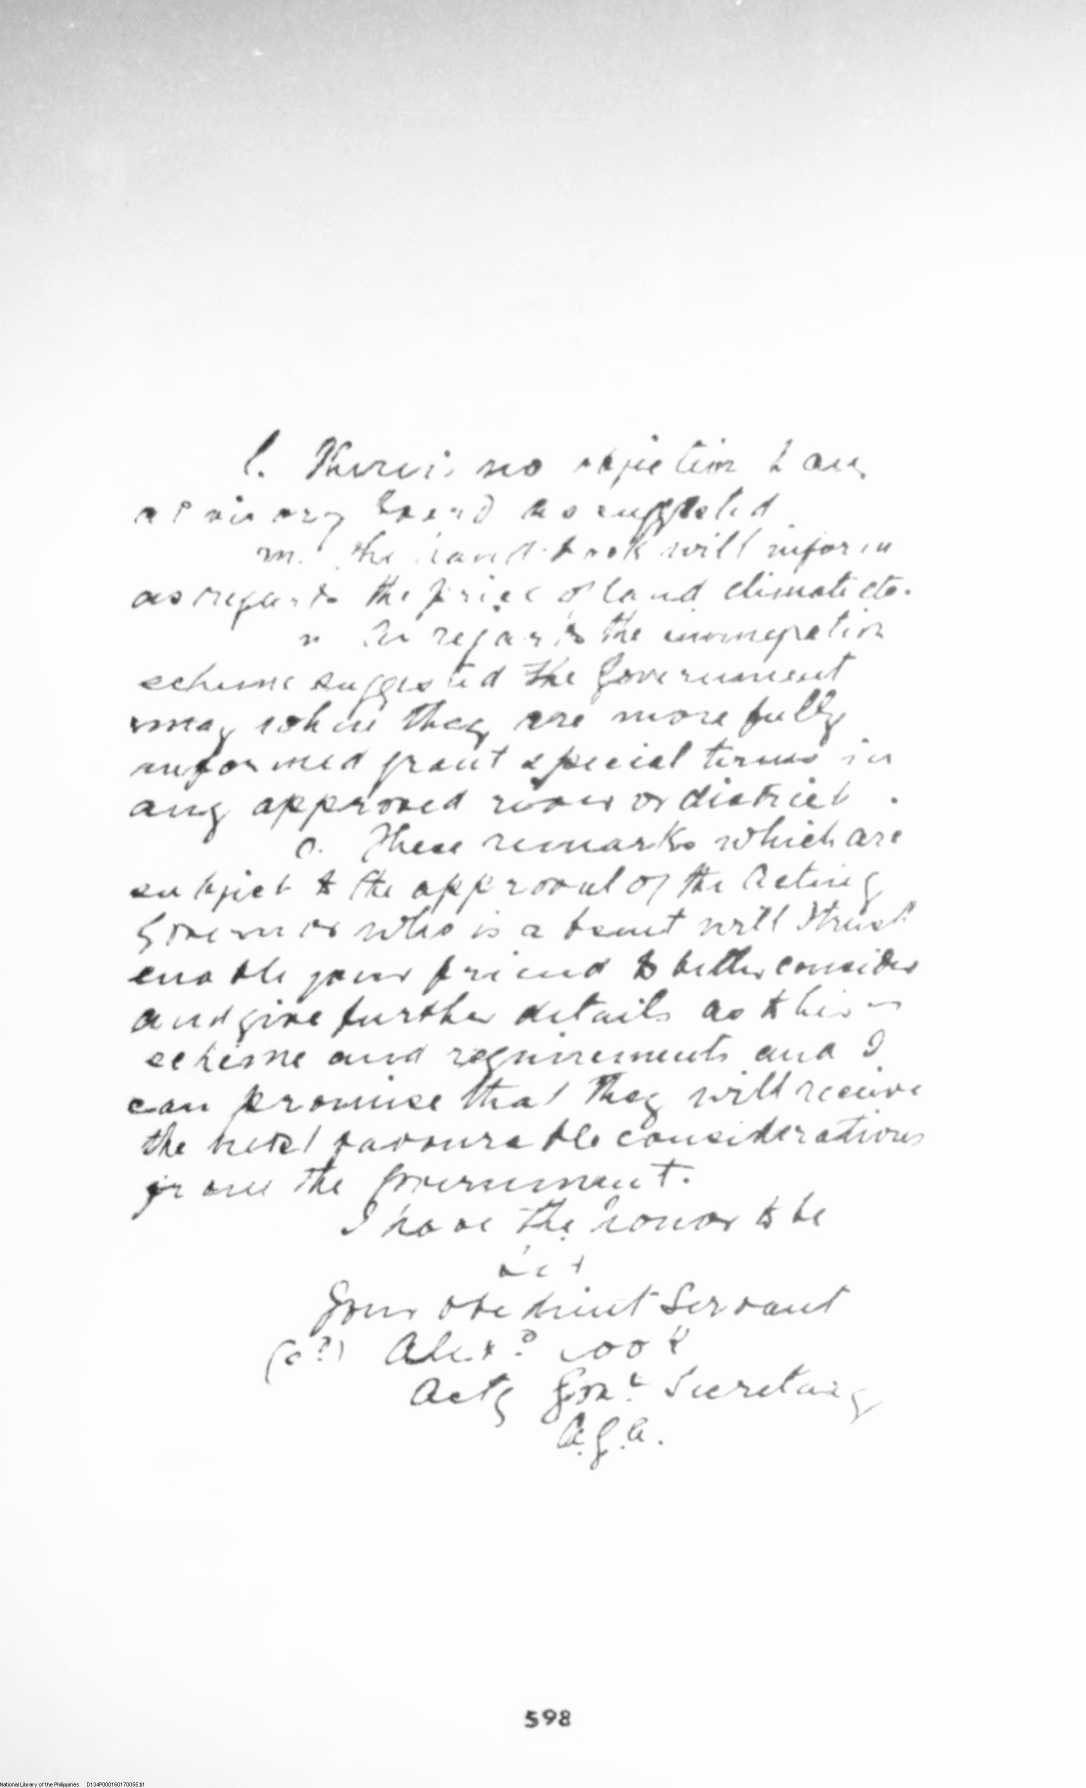 l. There is no objection to any
advisory board as suggested
m. The hand-book will inform
as regards the price of land climate etc.
n As regards the immigration
scheme suggested the Government
may when they are more fully
informed grant special terms in
any approved river or district.
o. These remarks which are
subject to the approval of the Acting
Governor who is absent will I trust
enable your friend to better consider
and give further details as to his
scheme and requirements and I
can promise that they will receive
the most favourable considerations
from the Government.
I have the honor to be
Sir
Your obedient Servant
Alex. Cook
Actg Govt Secretary
598
National Library of the Philippines